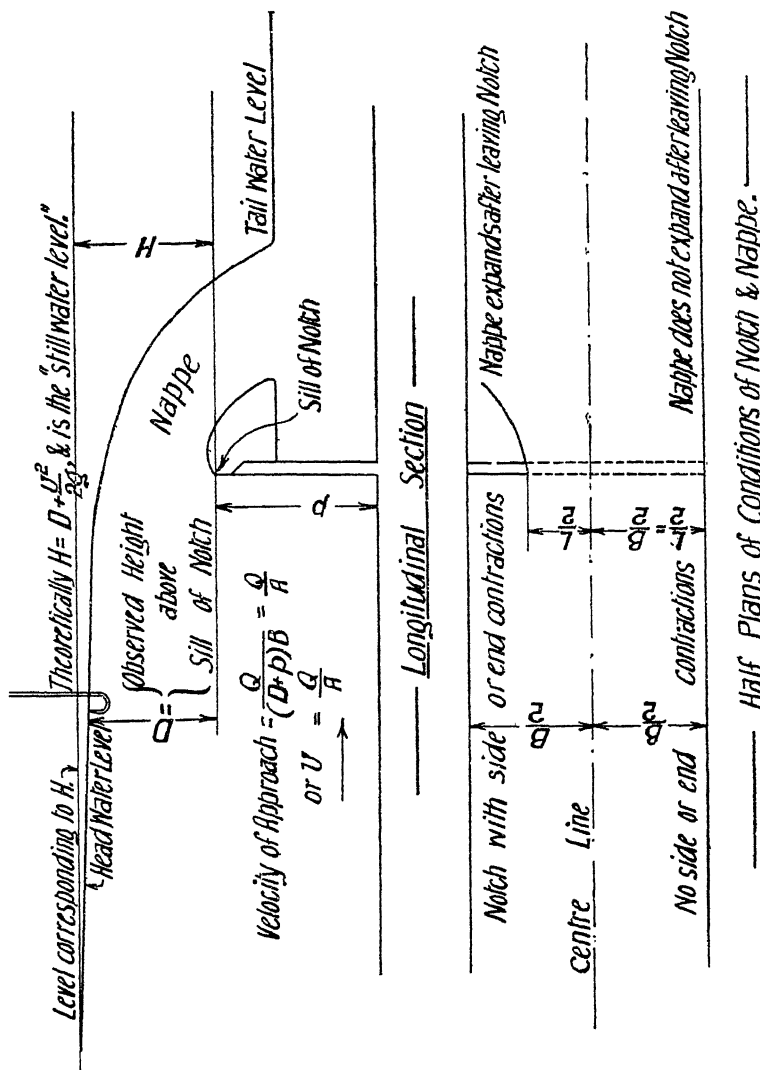 Level corresponding to H.
Theoretically H = D + U²/2g, & is the "still water level."
Head Water Level
D = { Observed Height
above
Sill of Notch }
H
Nappe
Tail Water Level
Velocity of Approach = Q/(D+p)B = Q/A
or U = Q/A
p
Sill of Notch
Longitudinal Section
Notch with side or end contractions
Nappe expands after leaving Notch
B/2
L/2
Centre Line
B/2
L/2 = B/2
No side or end contractions
Nappe does not expand after leaving Notch
Half Plans of Conditions of Notch & Nappe.